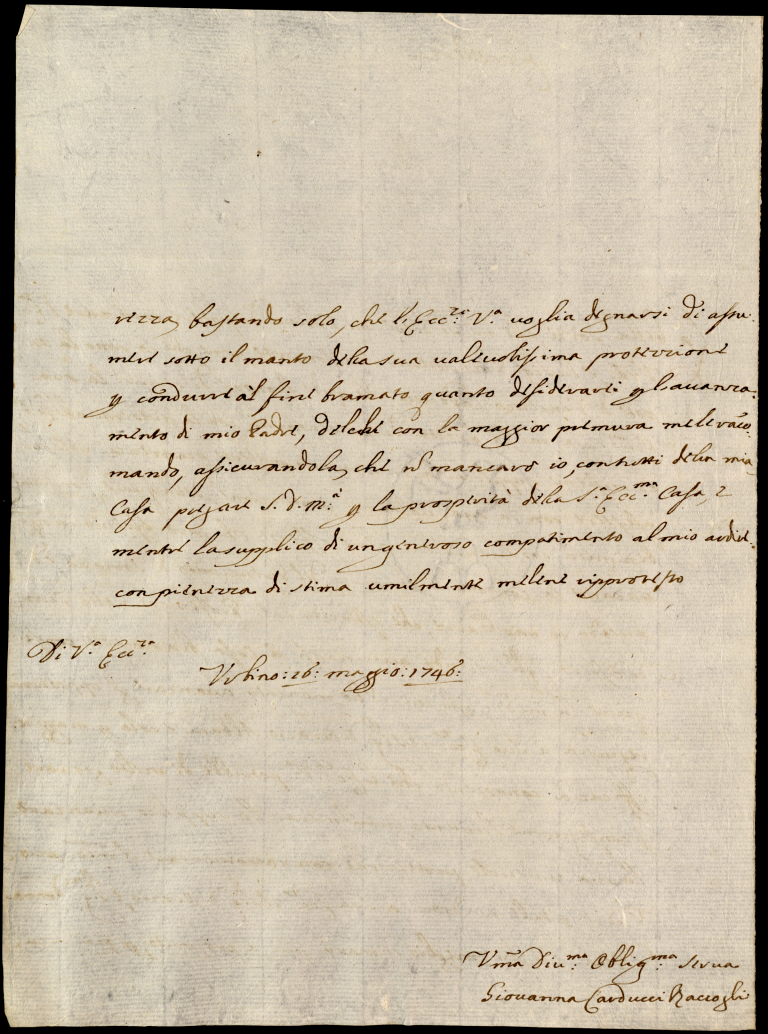 rezza, bastando solo, che l'Ecc.za V.a voglia degnarsi di assu-
mere sotto il manto della sua valevolissima protezzione
p condurre al fine bramato quanto desiderarei p l'avanza-
mento di mio Padre, del che con la maggior premura mele racco-
mando, assicurandola, che nō mancarò io, con tutti della mia
Casa pregare S. D. M.a p la prosperità della S.a Ecc.ma Casa, e
mentre la supplico di un generoso compatimento al mio ardire
con pienezza di stima umilmente melene ripprotesto
Di V.a Ecc.za
Urbino: 26: maggio: 1746:
Vma Div.ma Oblig.ma serva
Giovanna Carducci